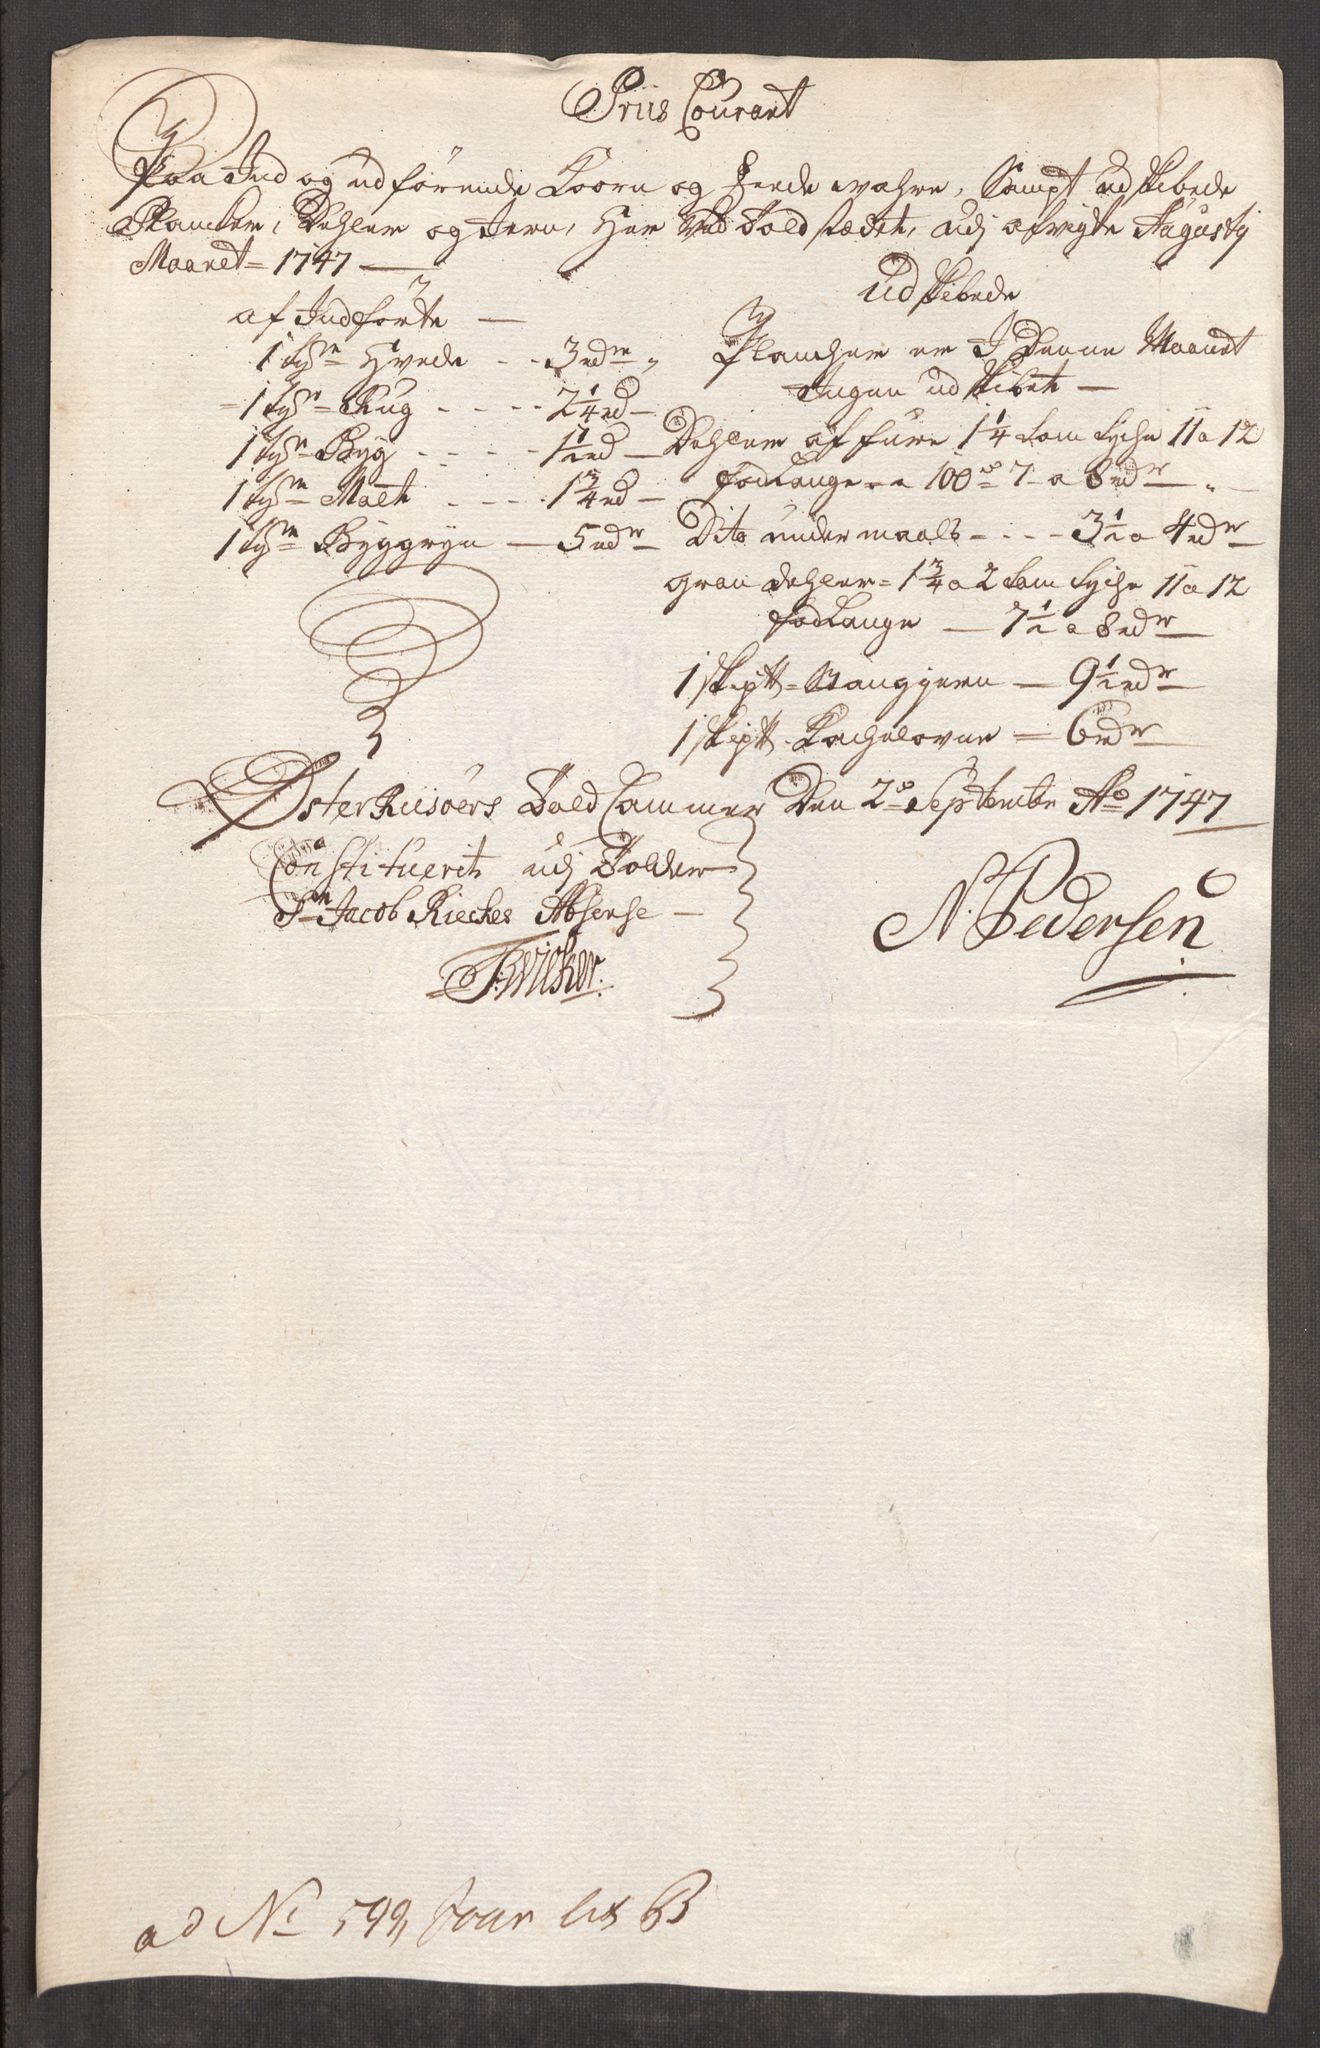 Priis Courant
Paa Ind og udförende Koorn og Feede wahre, Sampt udskibede
Plancker, Dehler og Jern, Her Ved Toldstædet, udj afvigte Augustj
Maanet = 1747 —
af Indförte —
1 Tdr Hvede - - 3 rdr „
1 Tdr Rug - - - - 2 1/4 rd —
1 Tdr Byg - - - - 1 1/2 rd —
1 Tdr Malt - - - - 1 3/4 rd —
1 Tdr Byggryn — 5 rdr
Udskibede
Plancker er I Denne Maanet
Ingen udskibet —
Dehler af fure 1 1/4 tom tyche 11 a 12
fod Lange - a 100de 7 a 8 rdr „ —
Dito under maals - - - - 3 1/2 a 4 rdr
gran Dehler = 1 3/4 a 2 tom tyche 11 a 12
fod Lange — 7 1/2 a 8 rdr
1 Skiptt = Stangjern — 9 1/2 rdr
1 Skiptt Kachelovne = 6 rdr
Österriisöers Told Cammer Den 2de Septembr Ao 1747
Constituerit udj Tolder
Sr Jacob Rieches Absense —
N. Pedersen
ad No 599, Jour Lit B